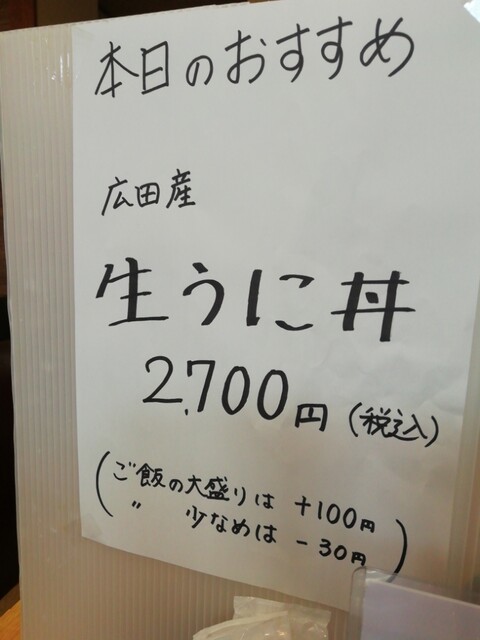 本日のおすすめ
広田産
生うに丼
2,700円(税込)
(ご飯の大盛りは +100円
〃 少なめは -30円)